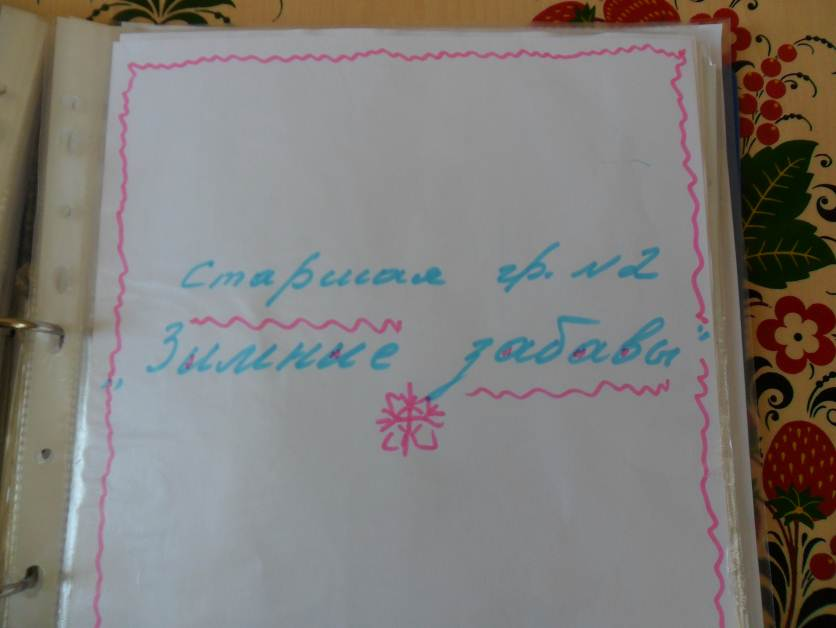 Старшая гр. №2
„Зимние забавы"